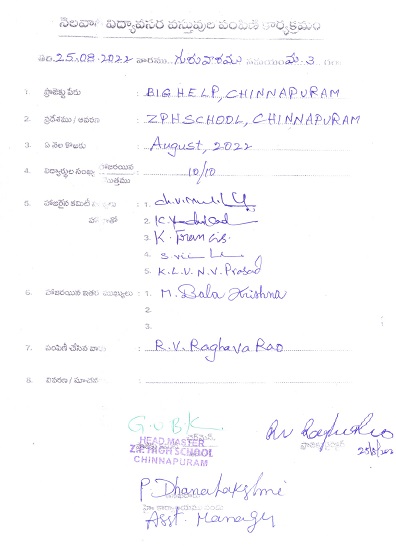 నెలవారీ విద్యావసర వస్తువుల పంపిణీ కార్యక్రమం
తేది: 25.08.2022 వారము గురువారము సమయం మ. 3 గం
1. ప్రాజెక్టు పేరు : BIG HELP, CHINNAPURAM
2. ప్రదేశము / ఆవరణ : ZPH SCHOOL, CHINNAPURAM
3. ఏ నెల కొఱకు : August, 2022
4. విద్యార్థుల సంఖ్య హాజరయిన మొత్తము : 10/10
5. హాజరైన కమిటీ : 1.
2.
3. K. Francis.
4.
5. K.L.V.N.V. Prasad
6. హాజరయిన ఇతర ముఖ్యులు : 1. M. Bala Krishna
2.
3.
7. పంపిణీ చేసిన వారు : R.V. Raghava Rao
8. వివరణ / సూచన :
G.V.B.K
HEAD MASTER
Z.P. HIGH SCHOOL
CHINNAPURAM
P. Dhanalakshmi
Asst. Manager